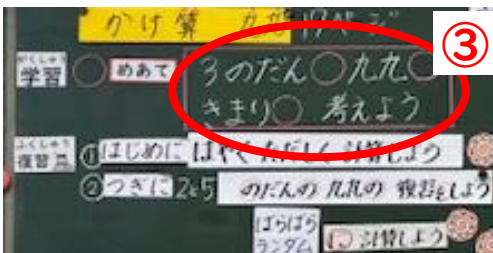 かけ算 九九 17ページ
③
がくしゅう
学習 ○ めあて 3のだん○九九○
きまり○ 考えよう
ふくしゅう
復習 ①はじめに はやく ただしく 計算しよう
②つぎに2と5 のだんの 九九の 復習をしよう
ばらばら
ランダム に 計算しよう